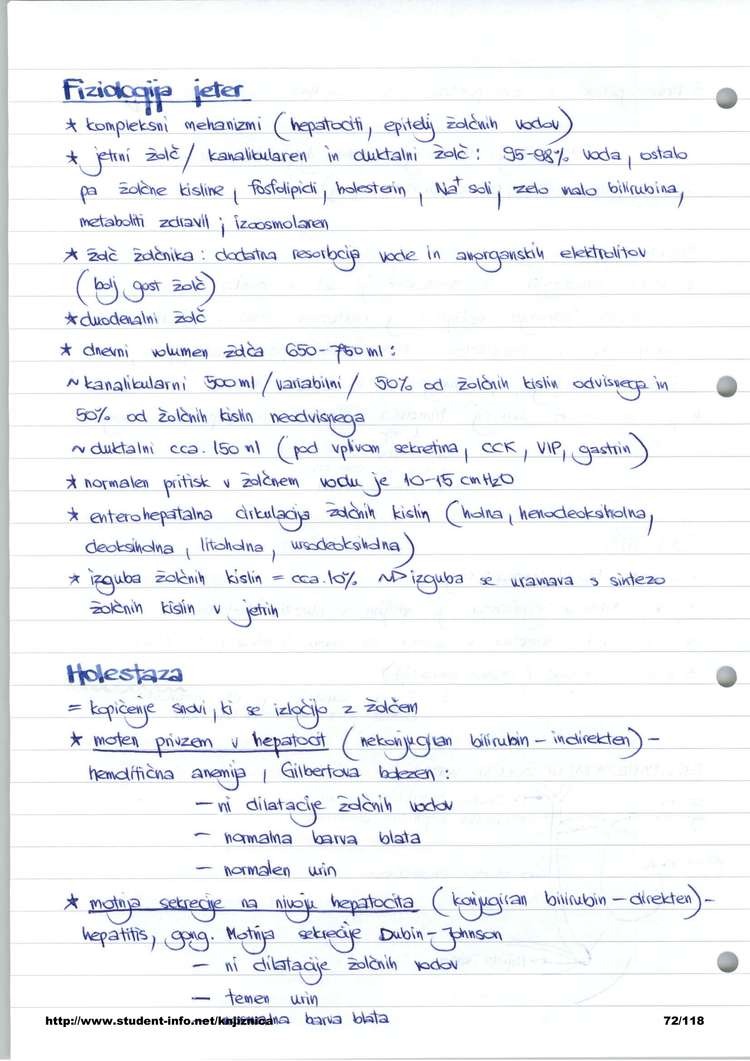 Fiziologija jeter
* kompleksni mehanizmi (hepatociti, epitelij žolčnih vodov)
* jetrni žolč / kanalikularen in duktalni žolč : 95-98% voda, ostalo
pa žolčne kisline, fosfolipidi, holesterin, Na⁺ soli, zelo malo bilirubina,
metaboliti zdravil ; izoosmolaren
* žolč žolčnika : dodatna resorbcija vode in anorganskih elektrolitov
(bolj gost žolč)
* duodenalni žolč
* dnevni volumen žolča 650-750 ml :
~ kanalikularni 500 ml / variabilni / 50% od žolčnih kislin odvisnega in
50% od žolčnih kislin neodvisnega
~ duktalni cca. 150 ml (pod vplivom sekretina, CCK, VIP, gastrin)
* normalen pritisk v žolčnem vodu je 10-15 cmH2O
* enterohepatalna cirkulacija žolčnih kislin (holna, henodeoksiholna,
deoksiholna, litoholna, ursodeoksiholna)
* izguba žolčnih kislin = cca. 10% ~> izguba se uravnava s sintezo
žolčnih kislin v jetrih
Holestaza
= kopičenje snovi, ki se izločijo z žolčem
* moten privzem v hepatocit (nekonjugiran bilirubin - indirekten) -
hemolitična anemija, Gilbertova bolezen :
- ni dilatacije žolčnih vodov
- normalna barva blata
- normalen urin
* motnja sekrecije na nivoju hepatocita (konjugiran bilirubin - direkten) -
hepatitis, gong. Motnja sekrecije Dubin-Johnson
- ni dilatacije žolčnih vodov
- temen urin
barva blata
http://www.student-info.net/knjiznica 72/118